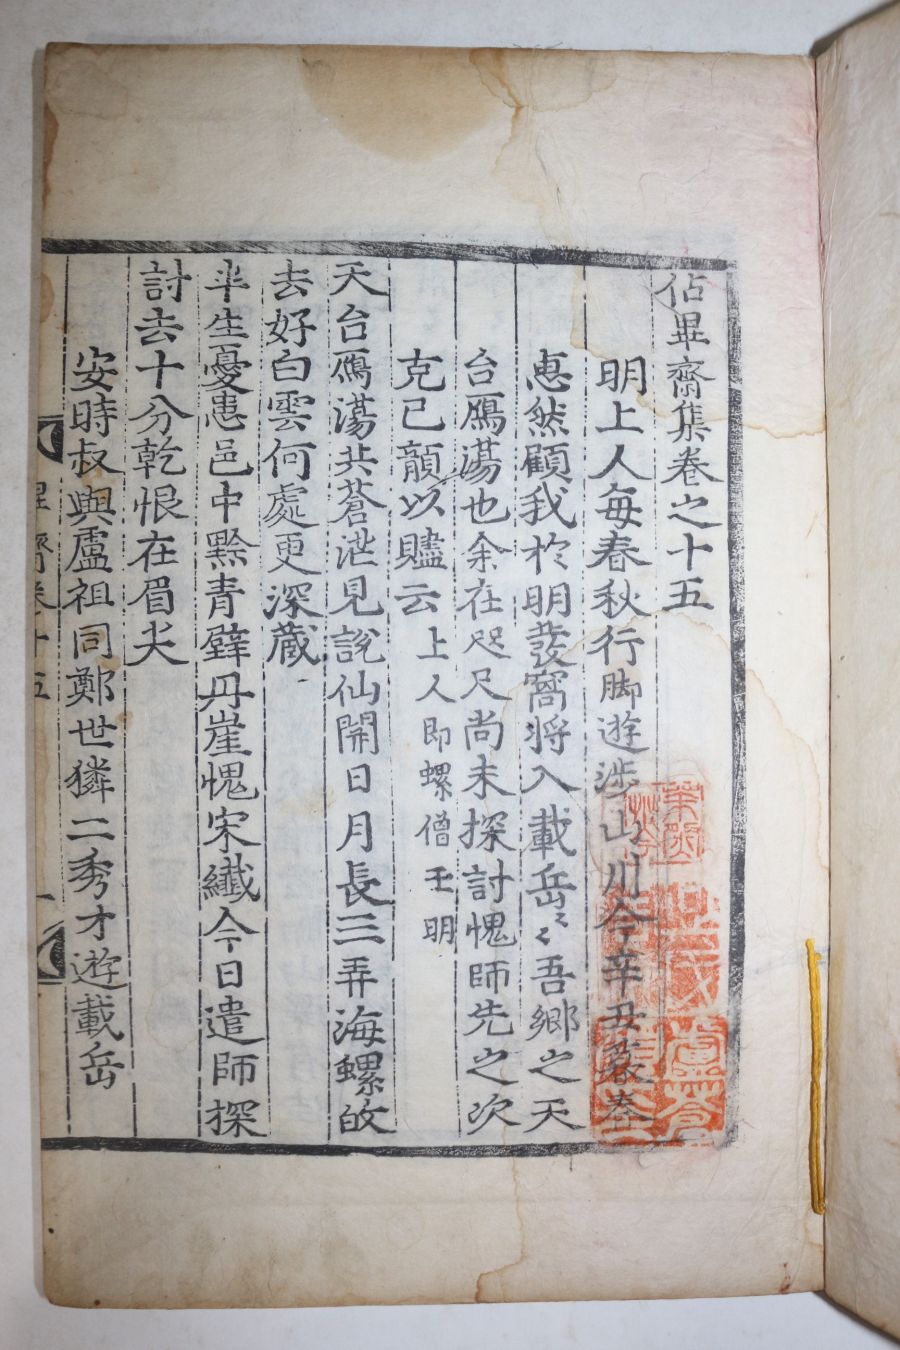 佔畢齋集卷之十五
明上人每春秋行脚遊涉山川今辛丑歲杪
惠然顧我於明發窩將入載岳〻〻吾鄉之天
台鴈蕩也余在咫尺尚未探討愧師先之次
克己韻以贐云上人即螺僧玉明
天台鴈蕩共蒼茫見說仙開日月長三弄海螺攸
去好白雲何處更深藏
半生憂患邑中黔青壁丹崖愧宋纖今日遣師探
討去十分乾恨在眉尖
安時叔與盧祖同鄭世獜二秀才遊載岳
畢齋卷十五 一